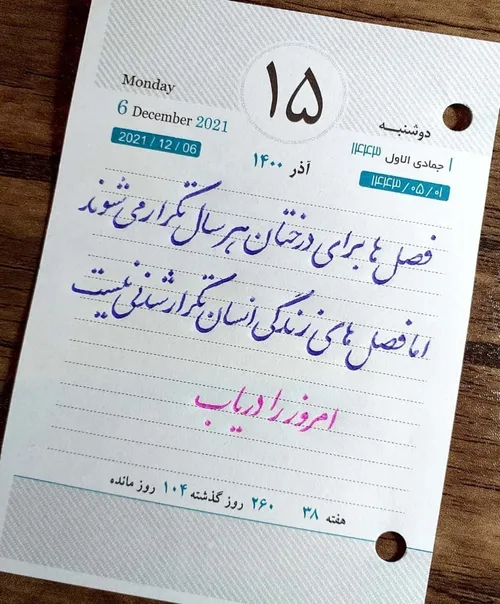 Monday
۱۵
دوشنبه
6 December 2021
۱ جمادی الاول ۱۴۴۳
2021 / 12 / 06
آذر ۱۴۰۰
۱۴۴۳/۰۵/۰۱
فصل ها برای درختان هر سال تکرار می شوند
اما فصل های زندگی انسان تکرار شدنی نیست
امروز را دریاب
هفته ۳۸ ۲۶۰ روز گذشته ۱۰۴ روز مانده